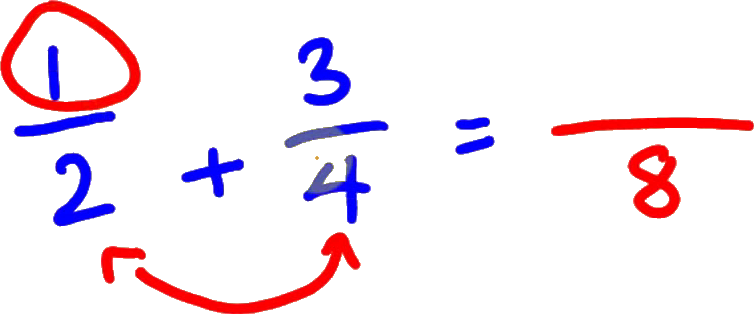 1/2 + 3/4 = /8